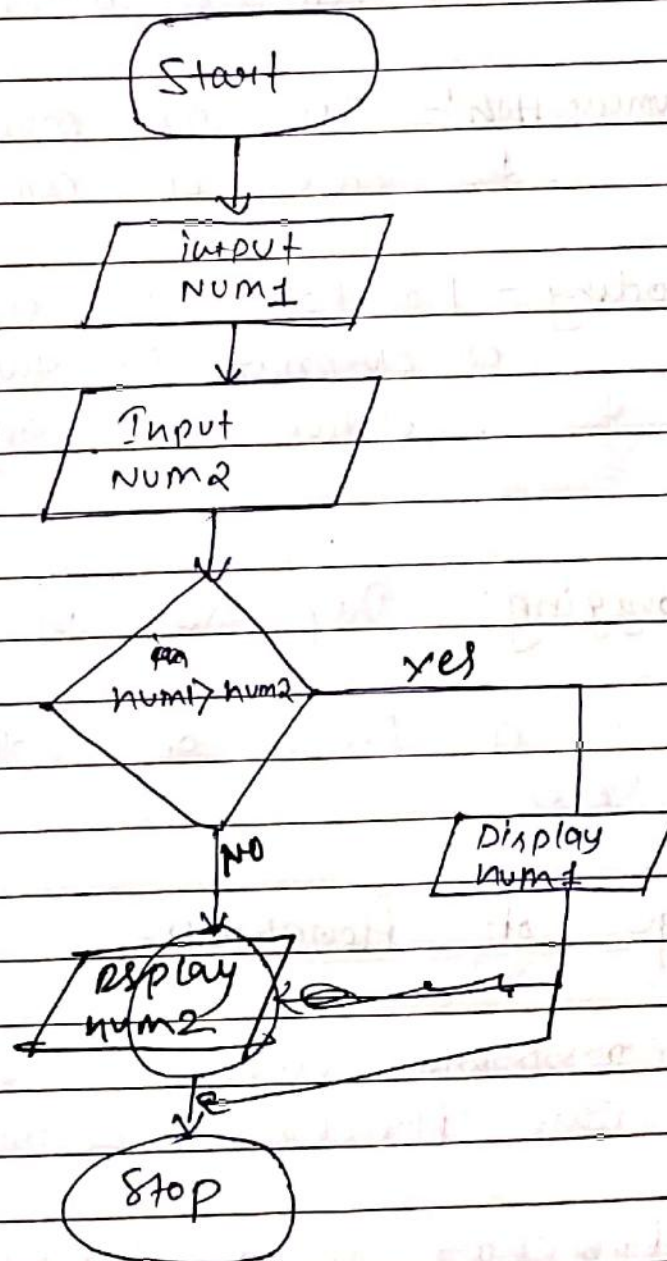 Start
intput
NUM1
Input
NUM2
num1> num2
yes
NO
Display
num1
DSplay
num2
Stop